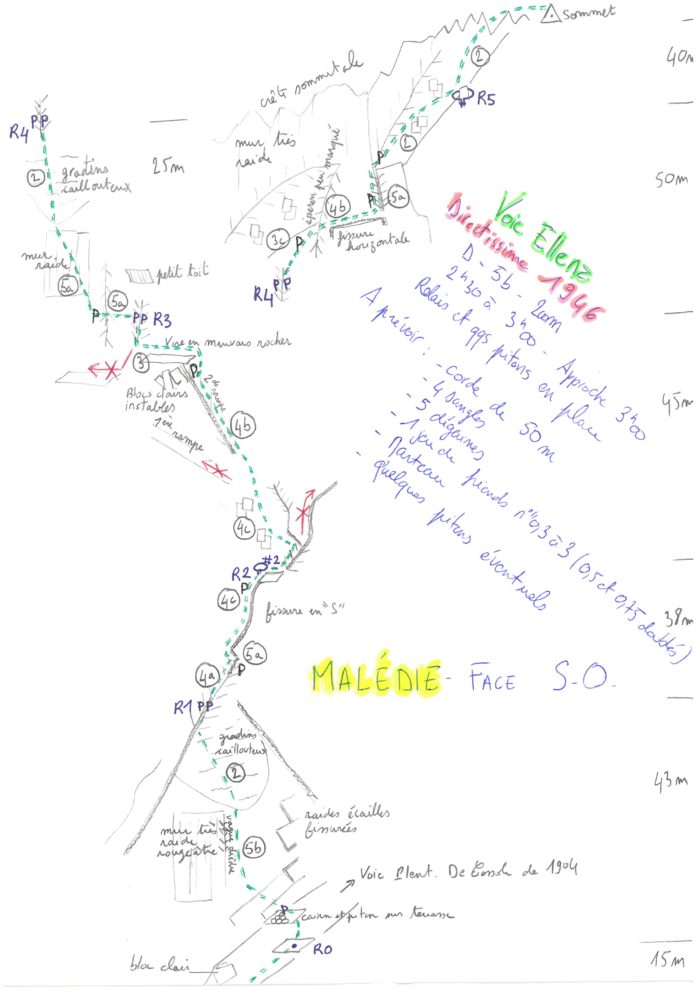 sommet
2
40m
crête sommitale
R5
2
R4 PP
25m
mur très
raide
P
50m
gradins
caillouteux
2
éperon peu marqué
4b
5a
P
3c
P
fissure
horizontale
Voie Ellenz
Directissime 1946
mur
raide
petit toit
R4 PP
5a
5a
P
PP R3
D - 5b - 200m
2h30 à 3h00 - Approche 3h00
Relais et qqs pitons en place
A prévoir :
- corde de 50 m
- 4 sangles
- 5 dégaines
- 1 jeu de friends n° 0,3 à 3 (0,5 et 0,75 doublés)
- Marteau
- Quelques pitons éventuels
Vire en mauvais rocher
3
P
Blocs clairs
instables
2de rampe
1ère rampe
4b
45m
4c
#2
R2
P
4c
fissure en "S"
38m
5a
4a
P
MALÉDIE - FACE S.O.
R1 PP
gradins
caillouteux
2
43m
raides écailles
fissurées
mur très
raide
rougeâtre
vague dièdre
5b
De Cessole de 1904
P
cairn et piton sur terrasse
R0
bloc clair
15m